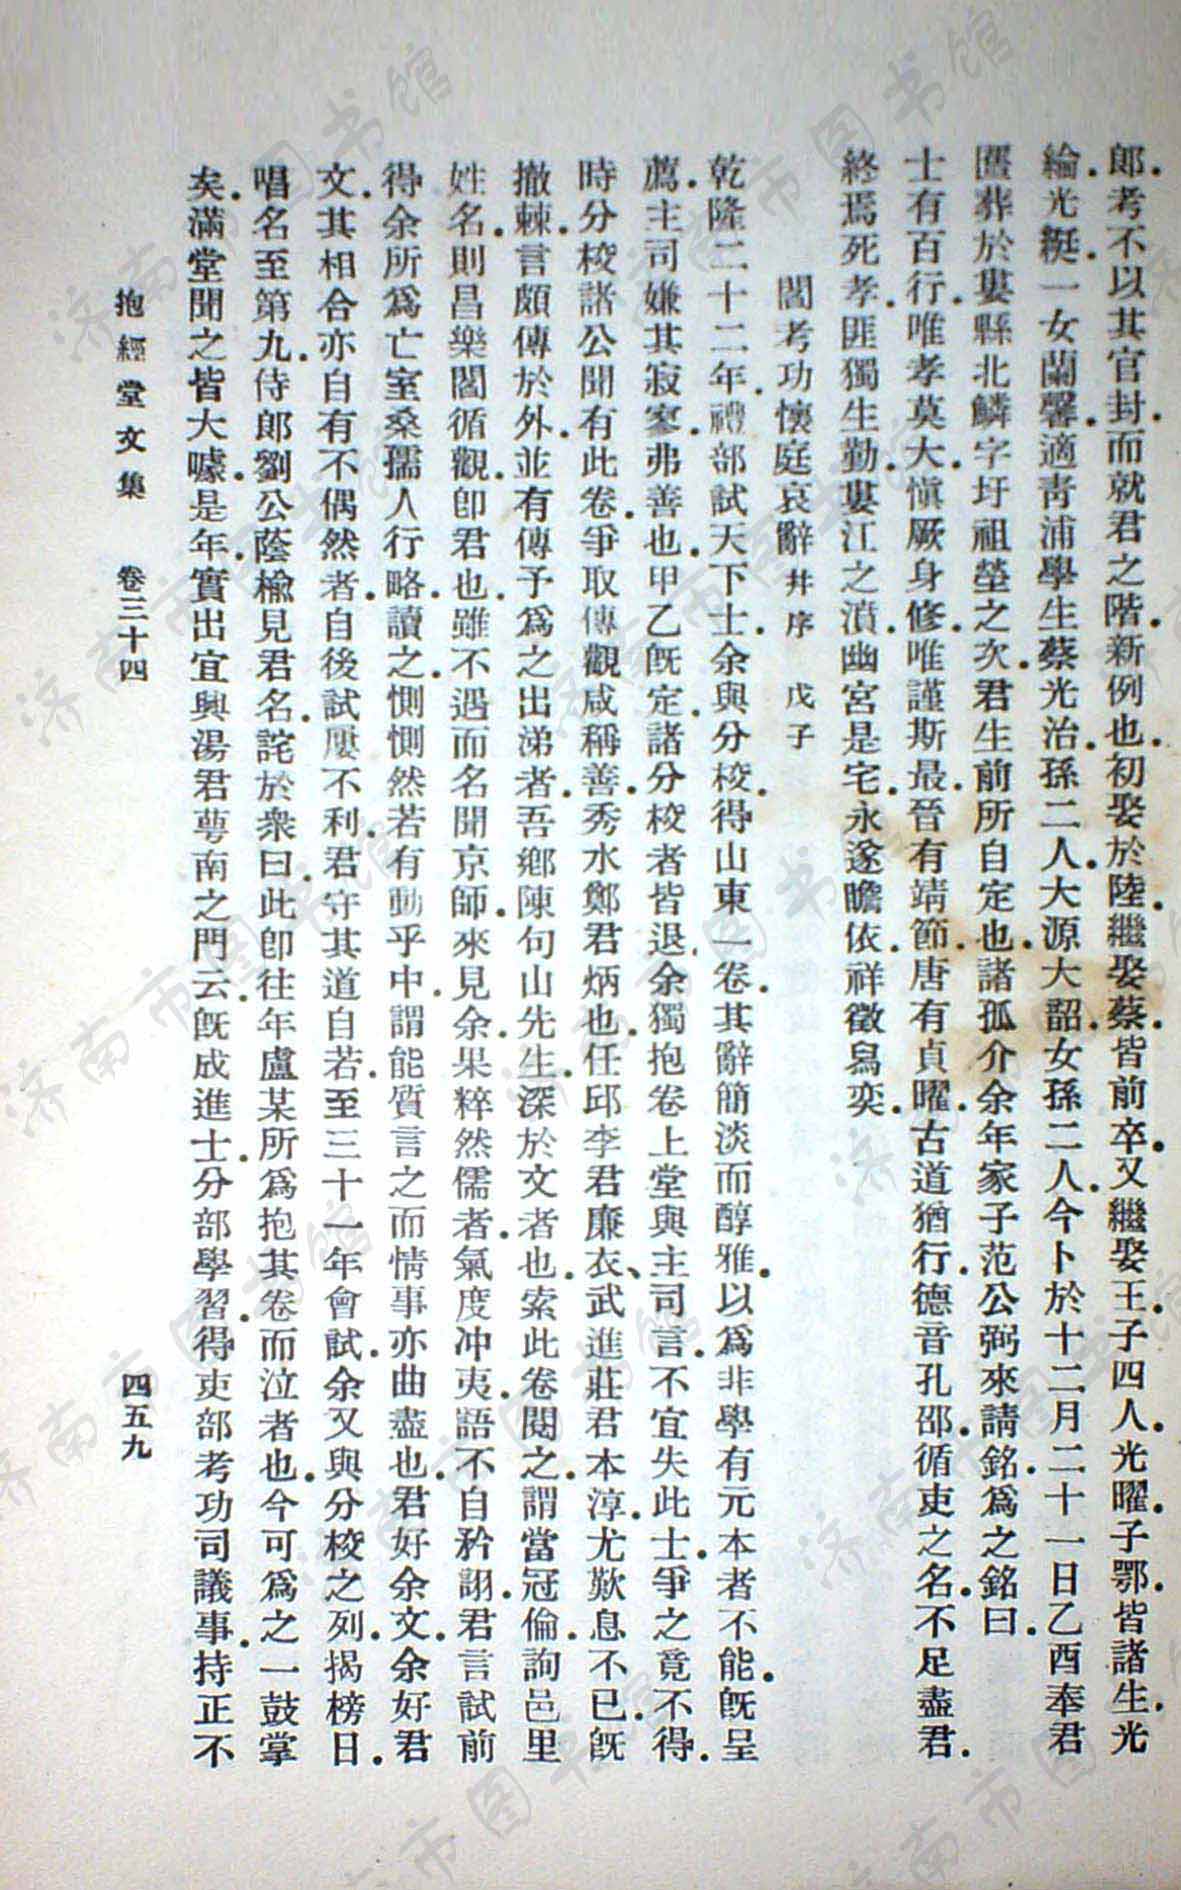 郎．考不以其官封．而就君之階．新例也．初娶於陸．繼娶蔡．皆前卒．又繼娶王．子四人．光曜．子鄂．皆諸生．光
綸．光艇．一女蘭馨．適青浦學生蔡光治．孫二人．大源大韶．女孫二人．今卜於十二月二十一日乙酉奉君
匶葬於婁縣北鱗字圩祖塋之次．君生前所自定也．諸孤介余年家子范公弼來請銘．爲之銘曰．
士有百行．唯孝莫大．愼厥身修．唯謹斯最．晉有靖節．唐有貞曜．古道猶行．德音孔邵．循吏之名．不足盡君．
終焉死孝．匪獨生勤．婁江之濆．幽宮是宅．永遂瞻依．祥徵舄奕．
閻考功懷庭哀辭 幷序 戊子
乾隆二十二年．禮部試天下士．余與分校．得山東一卷．其辭簡淡而醇雅．以爲非學有元本者不能．旣呈
薦．主司嫌其寂寥．弗善也．甲乙旣定．諸分校者皆退．余獨抱卷上堂與主司言．不宜失此士．爭之竟不得．
時分校諸公聞有此卷．爭取傳觀．咸稱善．秀水鄭君炳也．任邱李君廉衣、武進莊君本淳．尤歎息不已．旣
撤棘．言頗傳於外．並有傳予爲之出涕者．吾鄕陳句山先生．深於文者也．索此卷閱之．謂當冠倫．詢邑里
姓名．則昌樂閻循觀．卽君也．雖不遇而名聞京師．來見余．果粹然儒者．氣度冲夷．語不自矜詡．君言試前
得余所爲亡室桑孺人行略．讀之惻惻然若有動乎中．謂能質言之而情事亦曲盡也．君好余文．余好君
文．其相合亦自有不偶然者．自後試屢不利．君守其道自若．至三十一年會試．余又與分校之列．揭榜日．
唱名至第九．侍郎劉公蔭楡見君名．詫於衆曰．此卽往年盧某所爲抱其卷而泣者也．今可爲之一鼓掌
矣．滿堂聞之皆大噱．是年．實出宜興湯君萼南之門云．旣成進士．分部學習．得吏部考功司議事．持正不
抱經堂文集 卷三十四 四五九